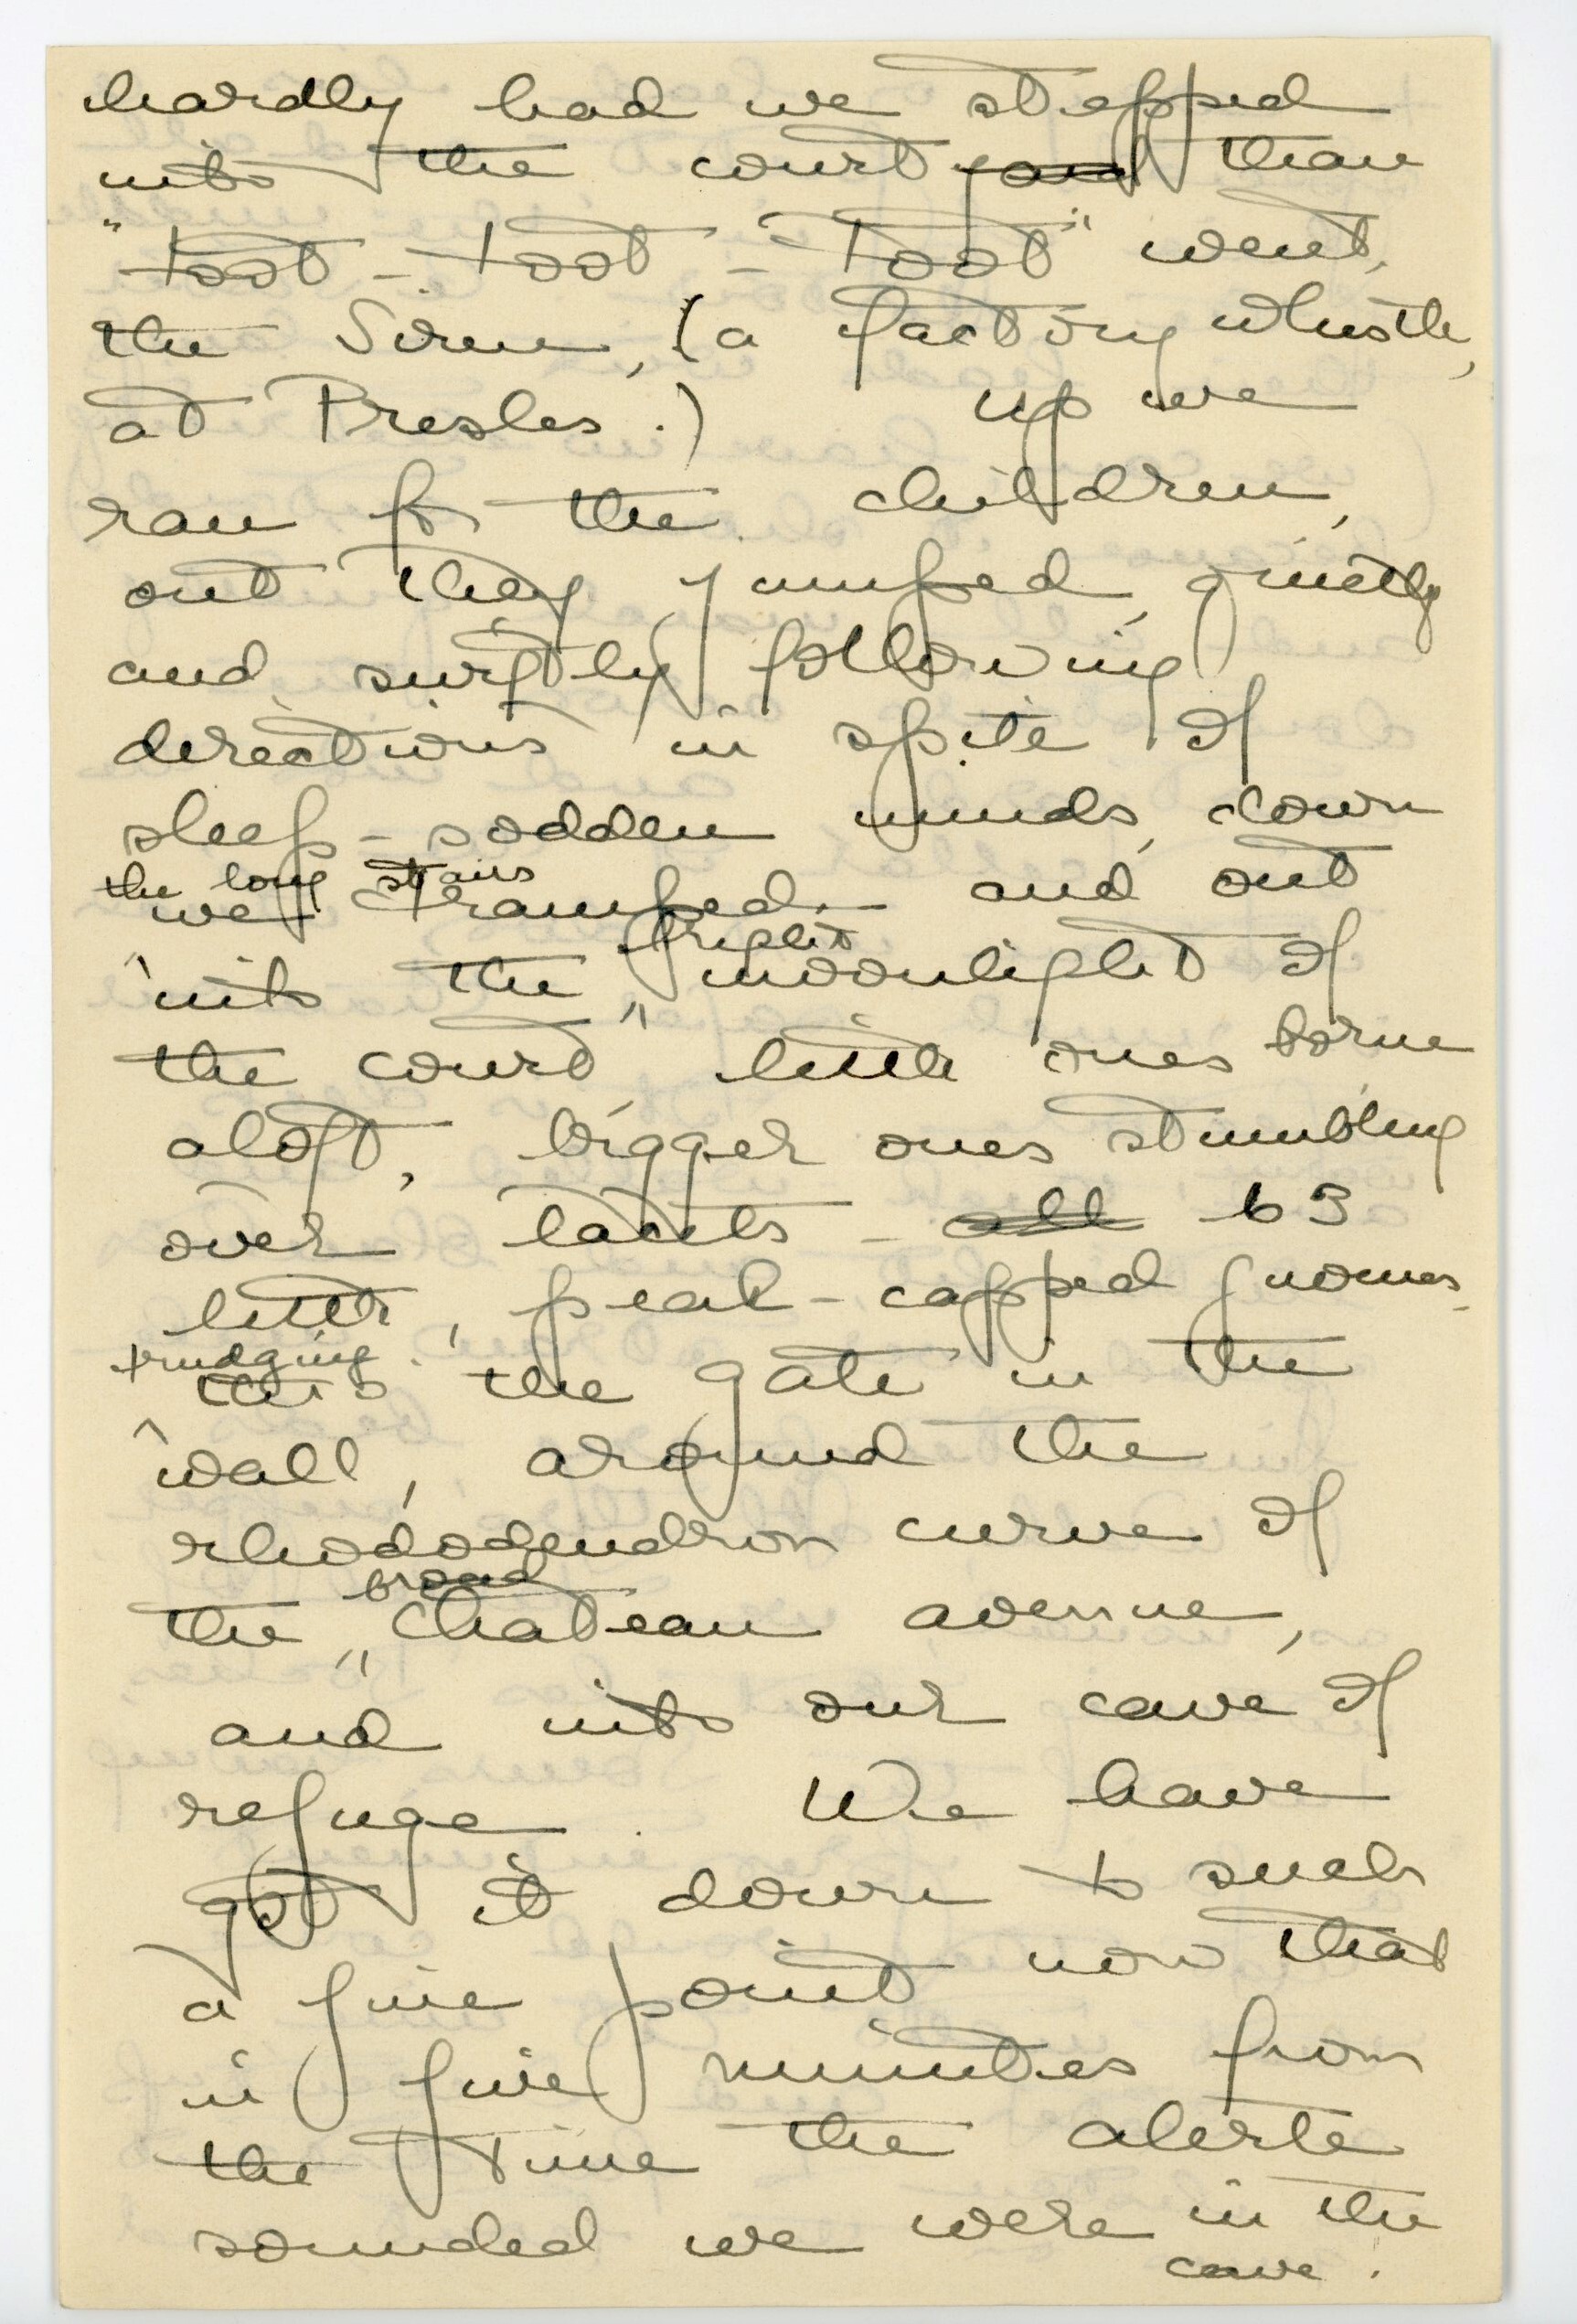 hardly had we stepped
into the court yard than
"toot - toot - toot" went,
the Siren, (a factory whistle,
at Presles.) up we
ran for the children,
out they jumped, quietly
and swiftly following
directions in spite of
sleep-sodden minds, down
the long stairs
we tramped - and out
bright
into the moonlight of
the court, little ones borne
aloft, bigger ones stumbling
over lacets - all 63
little, peak-capped gnomes,
trudging
thro the gate in the
wall, around the
rhododendron curve of
broad
the chateau avenue,
and into our cave of
refuge. We have
got it down to such
a fine point now that
in five minutes from
the time the alerte
sounded we were in the
cave.